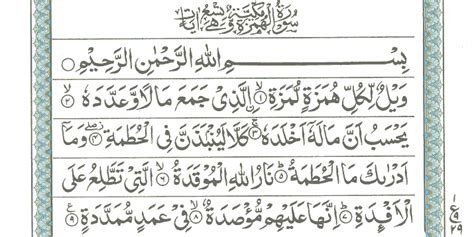 سُوْرَةُ الْهُمَزَةِ مَكِّيَّةٌ وَّهِيَ تِسْعُ اٰيَاتٍ
بِسْمِ اللهِ الرَّحْمٰنِ الرَّحِيْمِ ○
وَيْلٌ لِّكُلِّ هُمَزَةٍ لُّمَزَةٍ ۙ﴿۱﴾ الَّذِيْ جَمَعَ مَالًا وَّعَدَّدَهٗ ۙ﴿۲﴾
يَحْسَبُ اَنَّ مَالَهٗۤ اَخْلَدَهٗ ۚ﴿۳﴾ كَلَّا لَيُنْۢبَذَنَّ فِي الْحُطَمَةِ ۖ﴿۴﴾ وَمَاۤ
اَدْرٰىكَ مَا الْحُطَمَةُ ؕ﴿۵﴾ نَارُ اللهِ الْمُوْقَدَةُ ۙ﴿۶﴾ الَّتِيْ تَطَّلِعُ عَلَى
الْاَفْـِٕدَةِ ؕ﴿۷﴾ اِنَّهَا عَلَيْهِمْ مُّؤْصَدَةٌ ۙ﴿۸﴾ فِيْ عَمَدٍ مُّمَدَّدَةٍ ۠﴿۹﴾
۱
ع
۹
۲۹